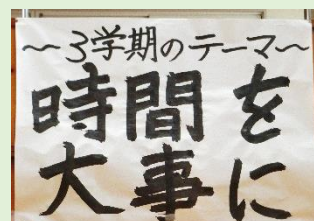 ～3学期のテーマ～
時間を
大事に